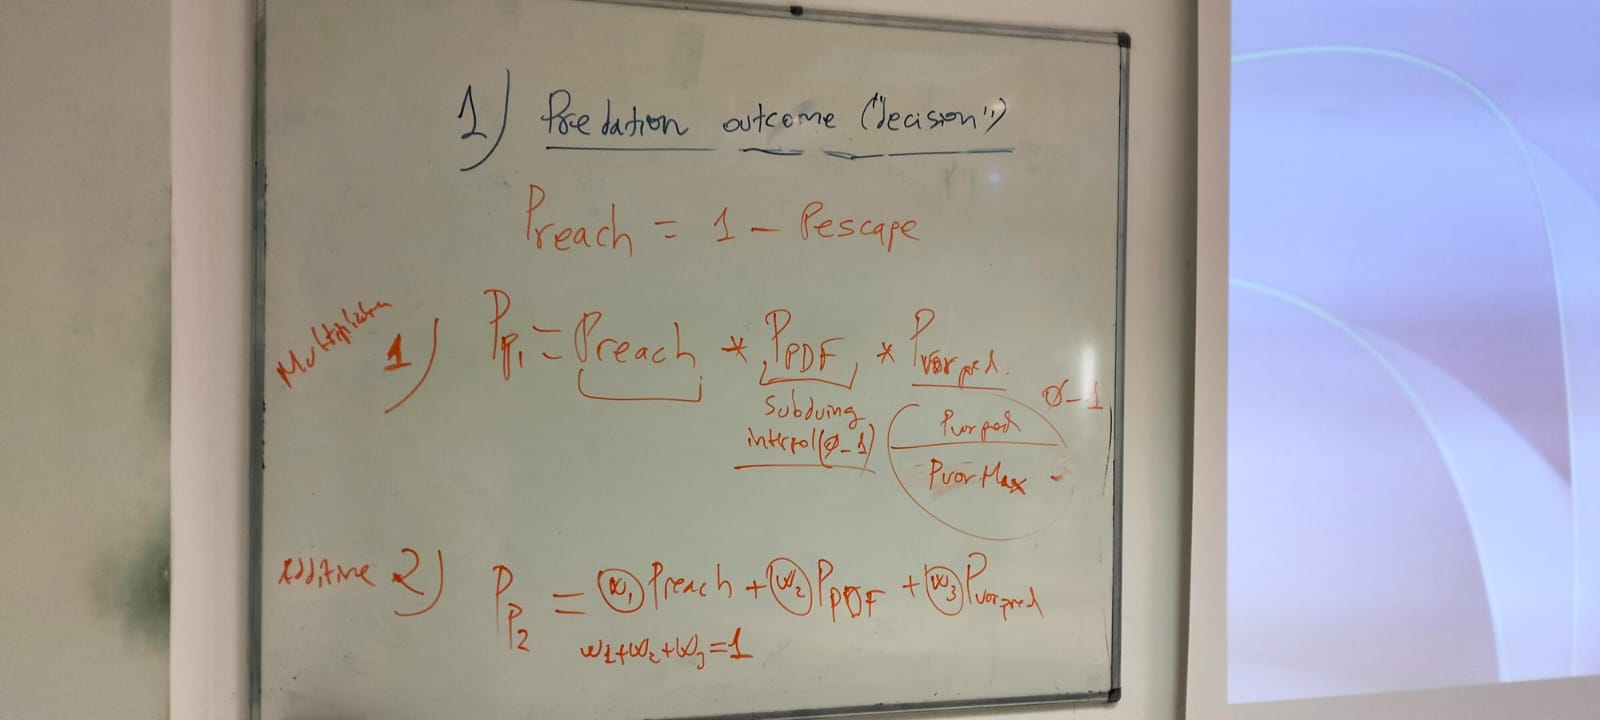 1) Predation outcome ("decision")
Preach = 1 - Pescape
1) Pp1 = Preach * PPDF * Pvorpred.
Subduing
interpol(Ø-1)
Ø-1
Pvorpred
PvorMax
Additive 2) Pp2 = w1 Preach + w2 PPDF + w3 Pvorpred
w1+w2+w3=1